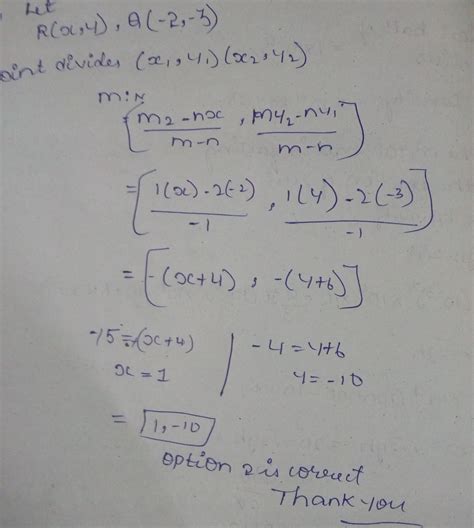 Let
R(x,y), Q(-2,-3)
oint divides (x1,y1)(x2,y2)
m:n
= [m2-nx/m-n, my2-ny1/m-n]
= [1(x)-2(-2)/-1, 1(y)-2(-3)/-1]
= [-(x+4), -(y+6)]
-5=-(x+4) | -4=y+6
x=1 | y=-10
= 1,-10
option 2 is correct
Thank you